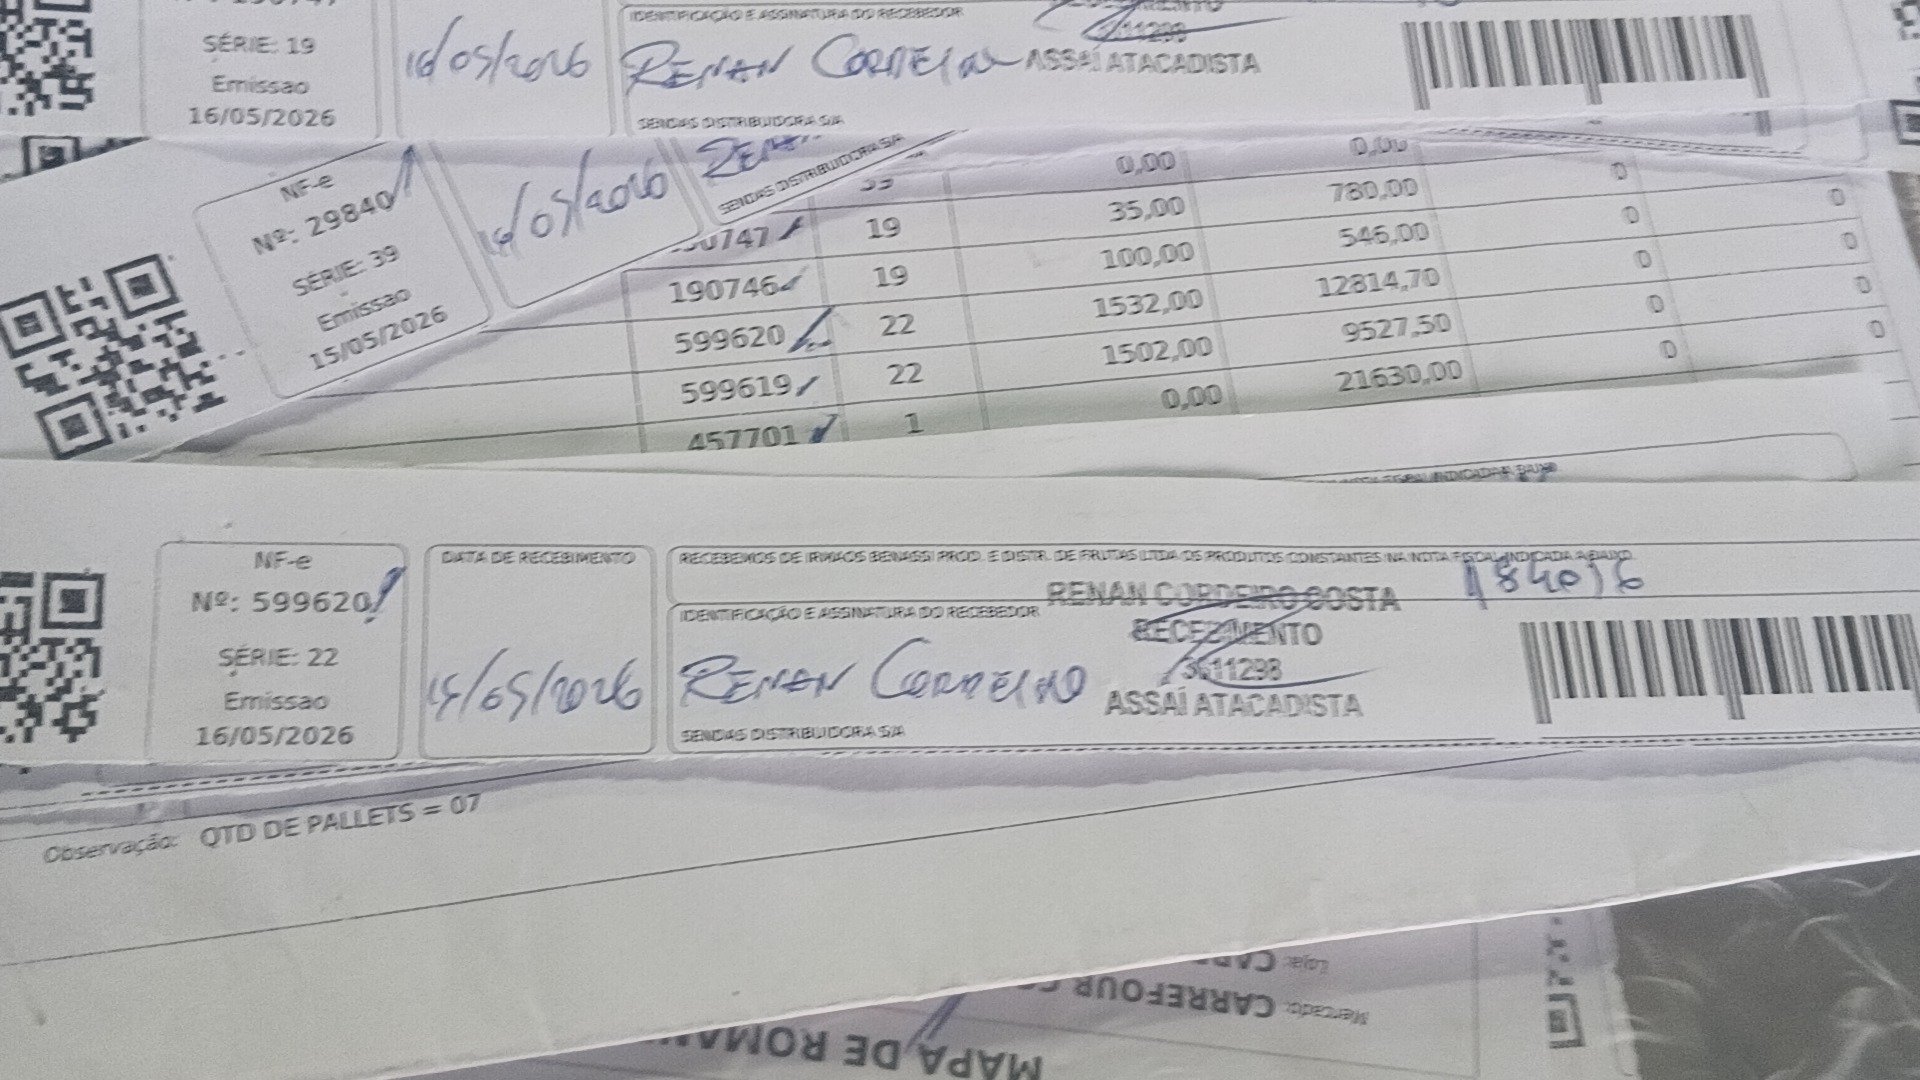 SÉRIE: 19
Emissao
16/05/2026
16/05/2026
IDENTIFICAÇÃO E ASSINATURA DO RECEBEDOR
RENAN CORDEIRO
ASSAÍ ATACADISTA
SENDAS DISTRIBUIDORA S/A
NF-e
Nº: 29840
SÉRIE: 39
Emissao
15/05/2026
16/05/2026
SENDAS DISTRIBUIDORA S/A
0,00 0,00
0747 19 35,00 780,00 0 0
190746 19 100,00 546,00 0 0
599620 22 1532,00 12814,70 0 0
599619 22 1502,00 9527,50 0 0
457701 1 0,00 21630,00 0 0
NF-e
Nº: 599620
SÉRIE: 22
Emissao
16/05/2026
DATA DE RECEBIMENTO
15/05/2026
RECEBEMOS DE IRMAOS BENASSI PROD. E DISTR. DE FRUTAS LTDA OS PRODUTOS CONSTANTES NA NOTA FISCAL INDICADA ABAIXO
184016
IDENTIFICAÇÃO E ASSINATURA DO RECEBEDOR
RENAN CORDEIRO COSTA
RECEBIMENTO
3611298
ASSAÍ ATACADISTA
RENAN CORDEIRO
SENDAS DISTRIBUIDORA S/A
Observação: QTD DE PALLETS = 07
Loja:
Mercado: CARREFOUR
MAPA DE